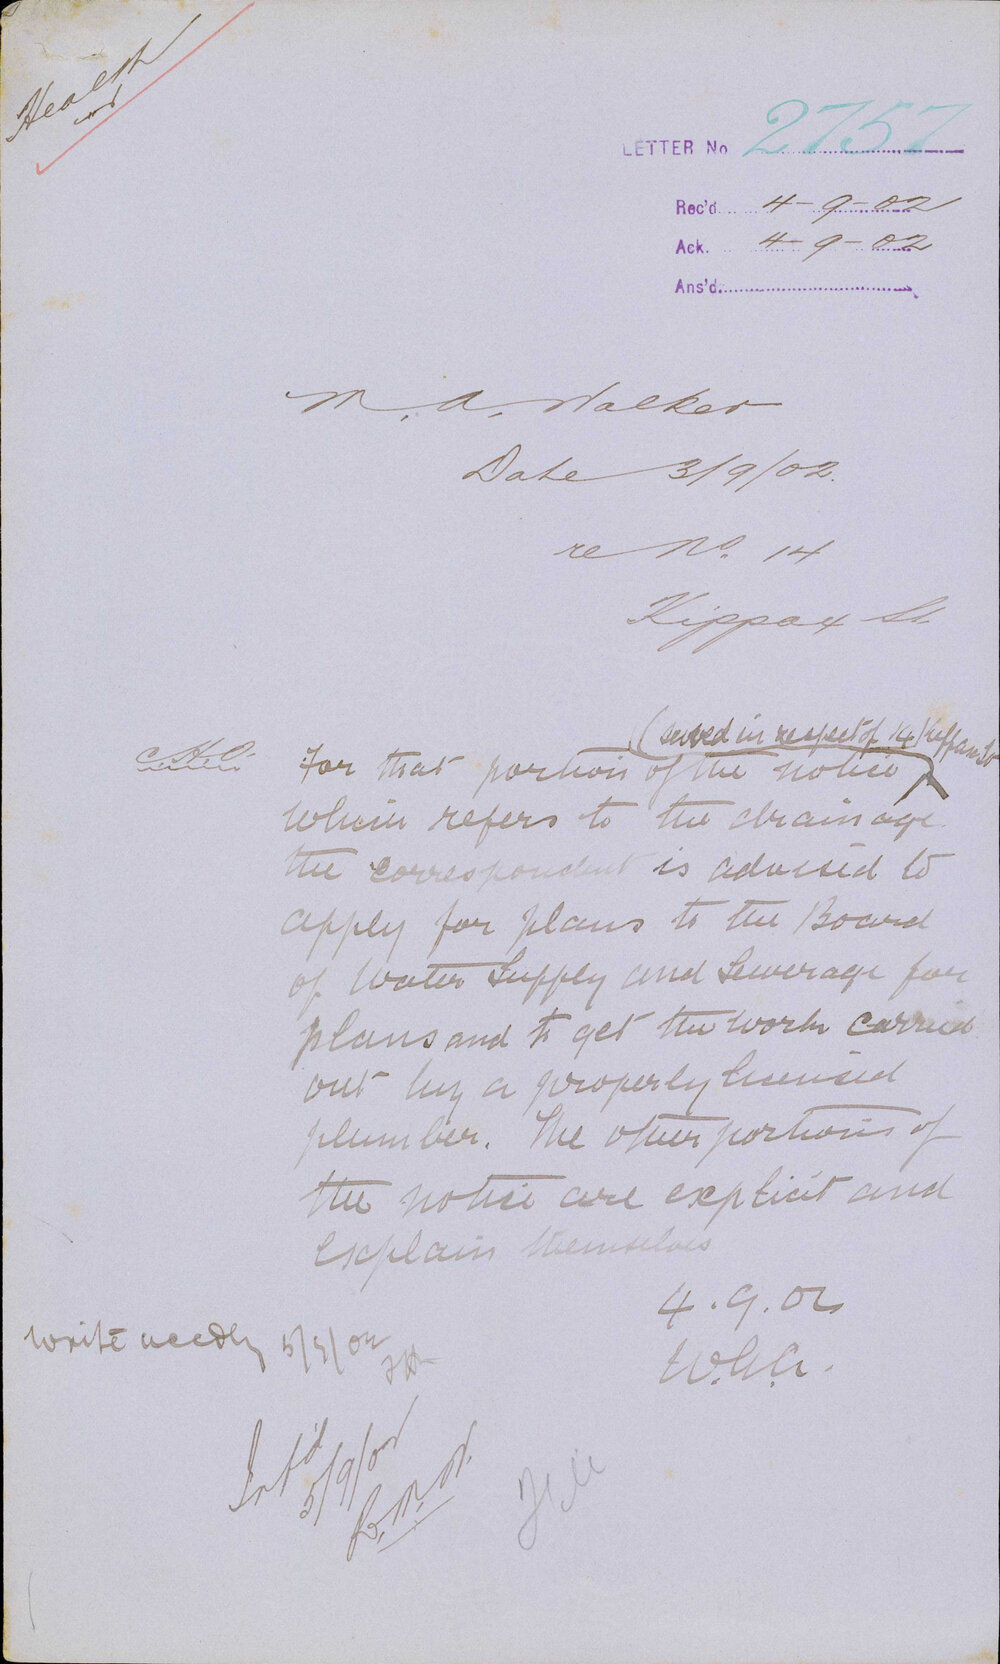 Health
LETTER No 2757
Rec'd. 4-9-02
Ack. 4-9-02
Ans'd.
M. A. Walker
Date 3/9/02.
re No. 14
Kippax St.
(served in respect of 14 Kippax St
C.H.O. For that portion of the notice
which refers to the drainage
the correspondent is advised to
apply for plans to the Board
of Water Supply and Sewerage for
plans and to get the work carried
out by a properly licensed
plumber. The other portions of
the notice are explicit and
explain themselves
4.9.02
Write accdly 5/9/02
W.G.A.
Inf'd
5/9/02
File